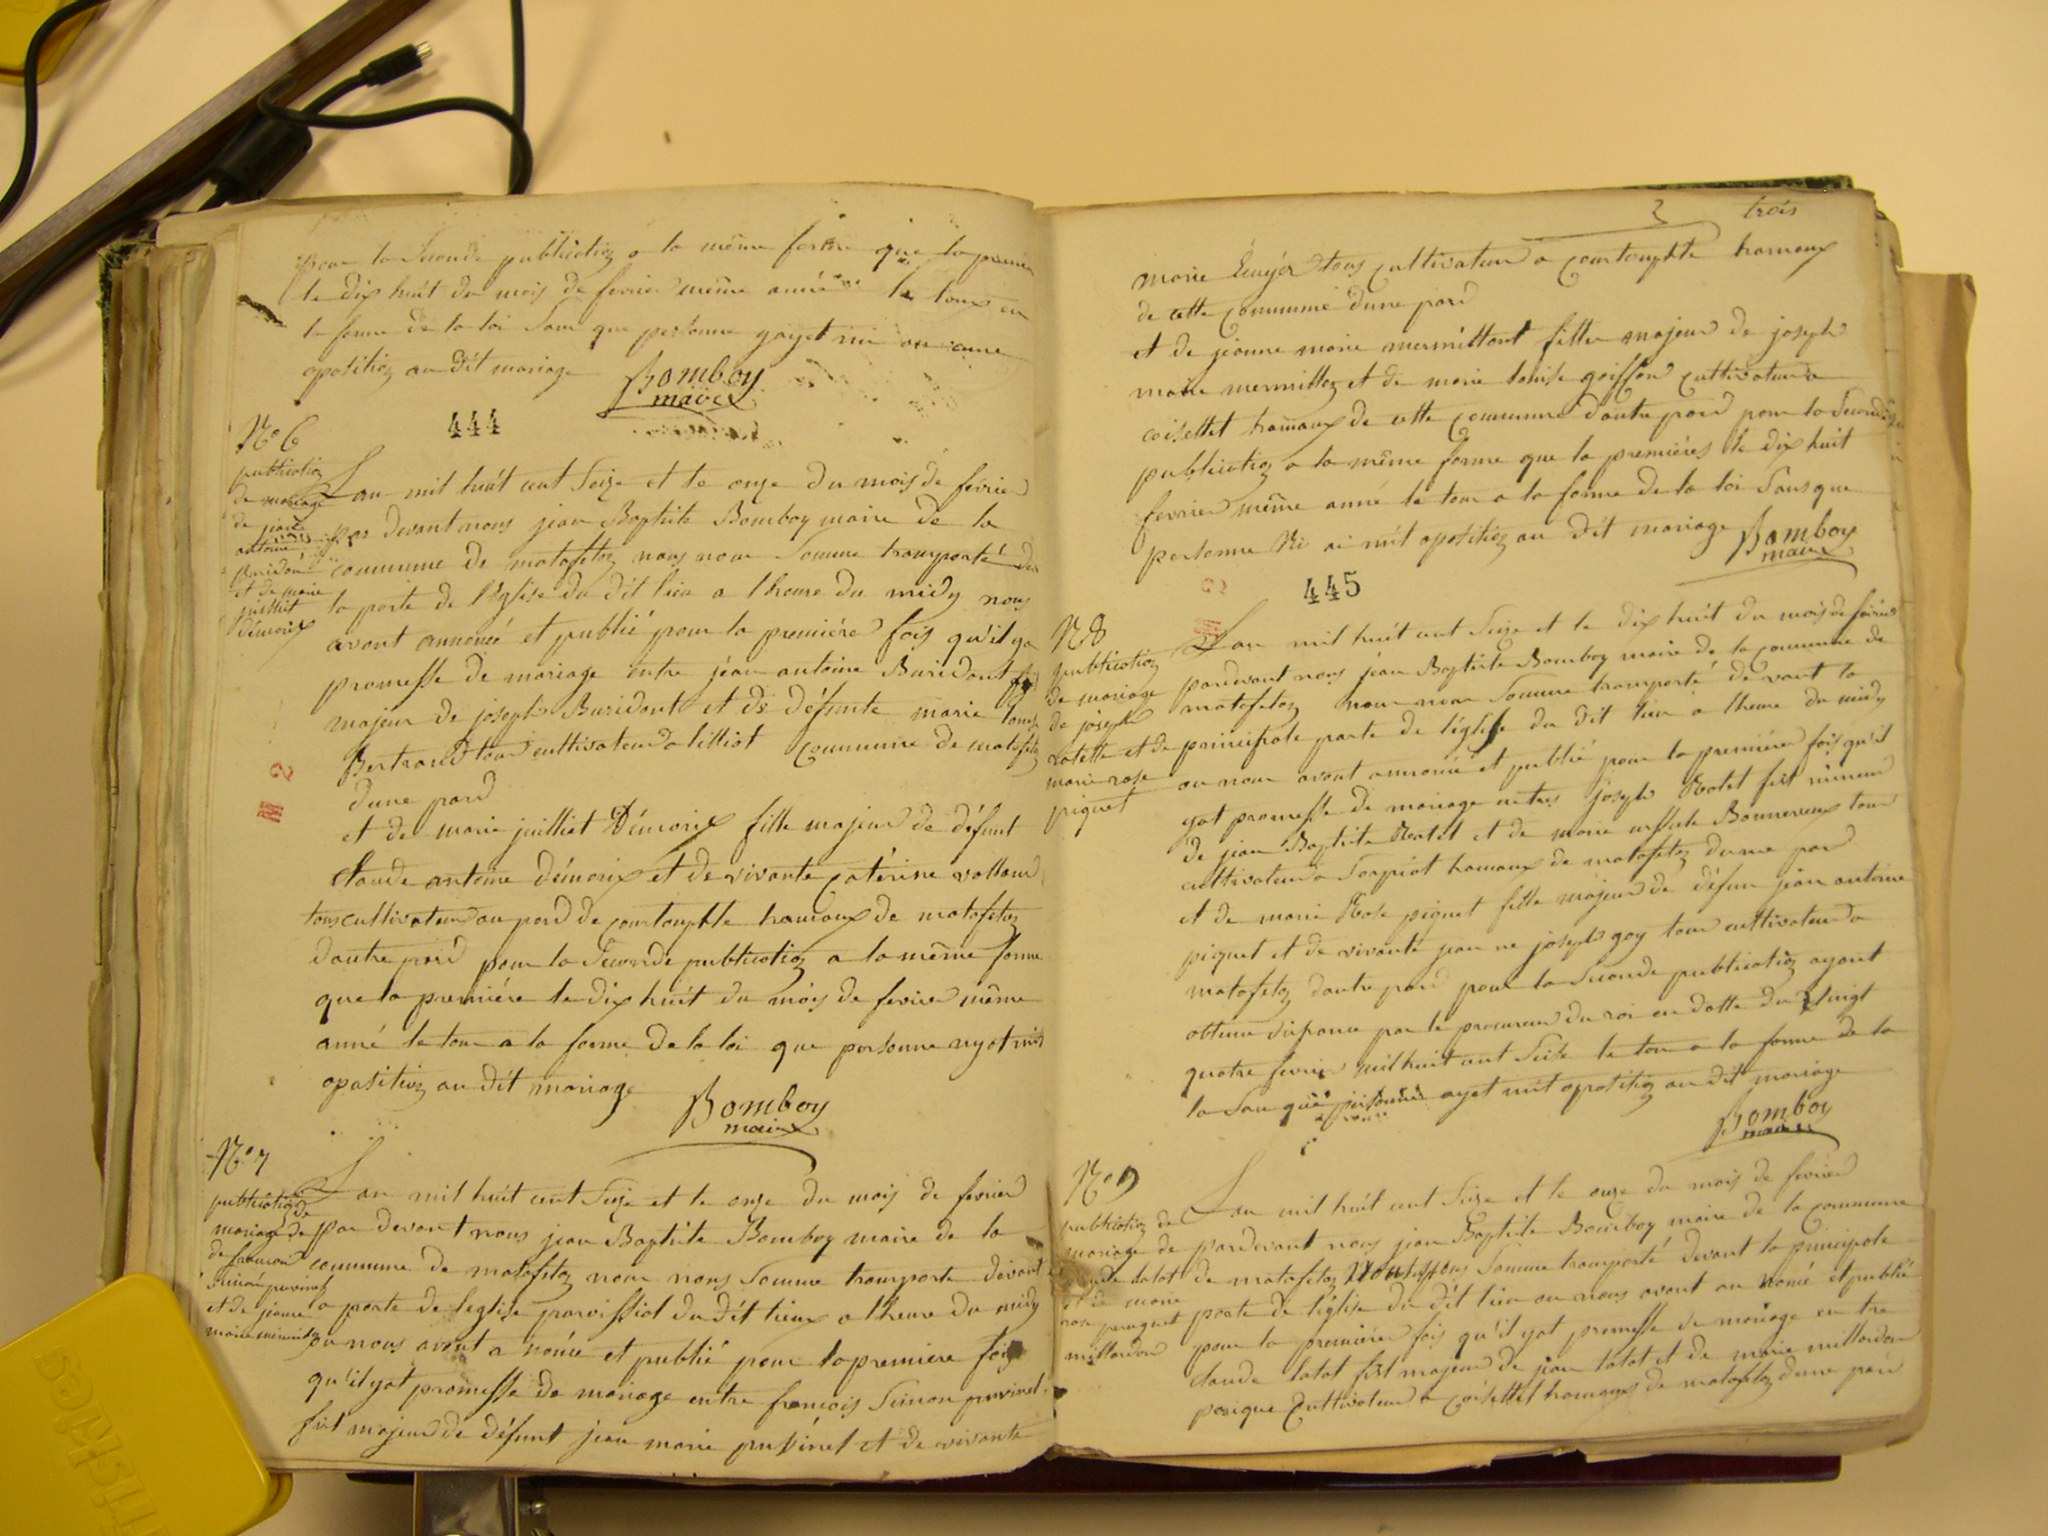 pour la seconde publication a la même forme que la premier
le dix huit du mois de fevrier même année le tout en
la forme de la loi sans que personne y ayet mi aucune
opositiez au dit mariage
Bomboy
maire
444
N° 6
publication
de mariage
de jean
antoine
Buridon
et de marie
juilliet
Démorix
L'an mil huit cent seize et le onze du mois de fevrier
par devant nous jean Baptiste Bomboy maire de la
commune de matafelon nous nous somme transporté de
la porte de l'Eglise du dit lieu a l'heure du midy nous
avont annoncé et publié pour la premiére fois qu'il ya
promesse de mariage entre jean antoine Buridont fils
majeur de joseph Buridont et de défunte marie louise
Bertrand tous cultivateur a lilliat commune de matafelon
dune pard
et de marie juilliet Démorix fille majeur de défunt
claude antoine démorix et de vivante catérine volland
tous cultivateur au pard de courtouphle hameaux de matafelon
dautre pard pour la seconde publication a la même forme
que la premiére le dix huit du mois de fevrier même
anné le tout a la forme de la loi que personne nyat mit
opositiez au dit mariage
Bomboy
maire
N° 7
publication de
mariage de
de francois
simon puvinel
et de jeanne
marie mermillon
L'an mil huit cent seize et le onze du mois de fevrier
par devant nous jean Baptiste Bomboy maire de la
commune de matafelon nous nous somme transporte devant
la porte de leglise paroissial du dit lieux a l'heure du midy
ou nous avont anoncé et publié pour la premiere fois
qu'il yat promesse de mariage entre francois simon puvinel
fils majeur de défunt jean marie puvinel et de vivante
3 trois
marie Ecuyér tous cultivateur a courtouphle hameaux
de cette commune dune pard
et de jeanne marie mermillont fille majeur de joseph
marie mermillon et de marie louise goiffon cultivateur a
coisellet hameaux de cette commune dautre pard pour la seconde
publication a la même forme que la premiéres le dix huit
fevrier même anné le tout a la forme de la loi sans que
personne ni ai mit opositiez au dit mariage
Bomboy
maire
445
N 8
publication
de mariage
de joseph
ratelle et de
marie rose
piquet
L'an mil huit cent seize et le dix huit du mois de fevrier
pardevant nous jean Baptiste Bomboy maire de la commune de
matafelon nous nous somme transporté devant la
principale porte de l'église du dit lieu a lheure du midy
ou nous avont annoncé et publié pour la premiére fois qu'il
yat promesse de mariage entres joseph Ratel fils mineur
de jean Baptiste Ratel et de marie ursule Bonnereux tous
cultivateur a Corpiat hameaux de matafelon dune pard
et de marie Rose piquet fille majeur de défun jean antoine
piquet et de vivante jeanne joseph gay tous cultivateur a
matafelon dautre pard pour la seconde publication ayant
obtenu dispance par le procureur du roi en datte du vingt
quatre fevrier mil huit cent seize le tout a la forme de la
la sans que personne ayet mit opositiez au dit mariage
Bomboy
maire
N° 9
publication de
mariage de
claude lalat
et de marie
rose
millardon
L'an mil huit cent seize et le onze du mois de fevrier
pardevant nous jean Baptiste Bomboy maire de la commune
de matafelon nous nous somme transporté devant la principale
porte de l'église du dit lieu ou nous avont annoncé et publié
pour la premiére fois qu'il yat promesse de mariage entre
claude lalat fils majeur de jean lalat et de marie millardon
cultivateur a coisellet hameaux de matafelon dune pard